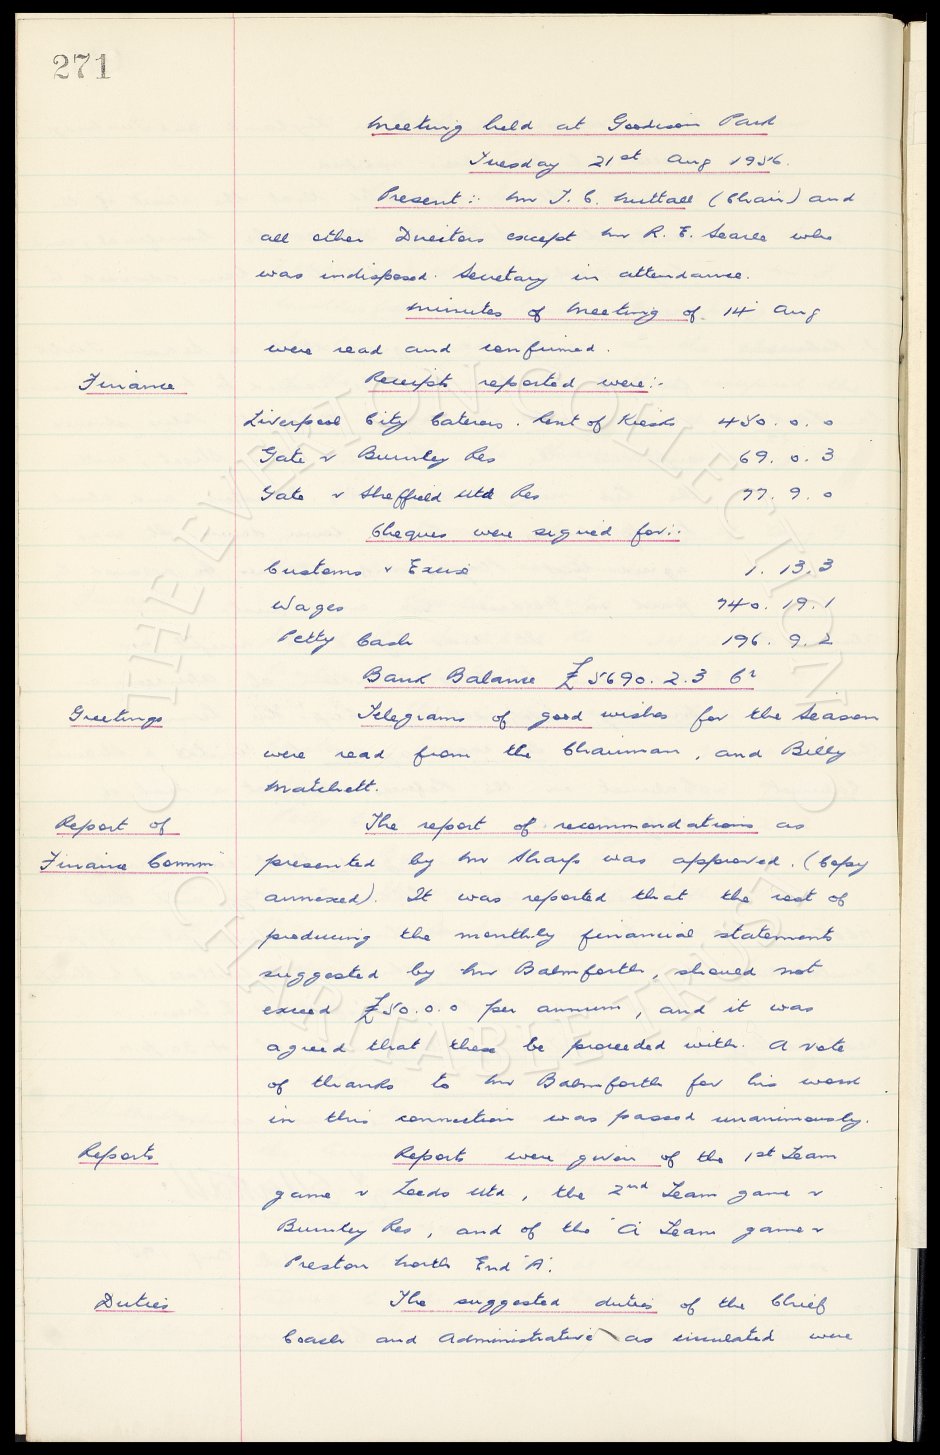 271
Meeting held at Goodison Park
Tuesday 21st Aug 1956.
Present:- Mr T. C. Nuttall (Chair) and
all other Directors except Mr R. E. Searle who
was indisposed. Secretary in attendance.
Minutes of Meeting of 14 Aug
were read and confirmed.
Finance
Receipts reported were:-
Liverpool City Caterers. Rent of Kiosks 450. 0. 0
Gate v Burnley Res 69. 0. 3
Gate v Sheffield Utd Res 77. 9. 0
Cheques were signed for:-
Customs & Excise 1. 13. 3
Wages 740. 19. 1
Petty Cash 196. 9. 2
Bank Balance £5690. 2. 3 Cr
Greetings
Telegrams of good wishes for the Season
were read from the Chairman, and Billy
Matchett.
Report of
Finance Comm
The report of recommendations as
presented by Mr Sharp was approved. (Copy
annexed). It was reported that the cost of
producing the monthly financial statements
suggested by Mr Balmforth, should not
exceed £50. 0. 0 per annum, and it was
agreed that these be proceeded with. A vote
of thanks to Mr Balmforth for his work
in this connection was passed unanimously.
Reports
Reports were given of the 1st Team
game v Leeds Utd, the 2nd Team game v
Burnley Res, and of the 'A' Team game v
Preston North End 'A'.
Duties
The suggested duties of the Chief
Coach and Administrative as circulated were
© THE EVERTON COLLECTION
CHARITABLE TRUST